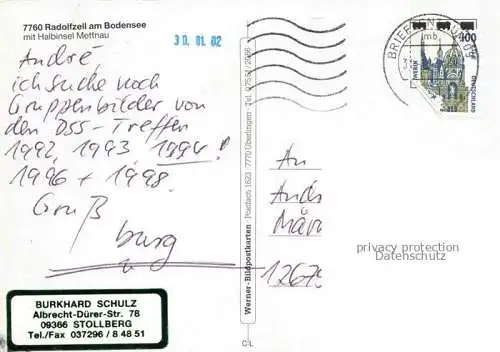 7760 Radolfzell am Bodensee
mit Halbinsel Mettnau
30. 01. 02
André,
ich suche noch
Gruppenbilder von
den DSS-Treffen
1992, 1993 1994!
1996 + 1998.
Gruß
burg
BURKHARD SCHULZ
Albrecht-Dürer-Str. 78
09366 STOLLBERG
Tel./Fax 037296 / 8 48 51
Werner-Bildpostkarten · Postfach 1623 · 7770 Überlingen · Tel. 07551/
C-L
BRIEFZENTRUM
mb
400
DEUTSCHLAND
An
Andr
Mär
1267
privacy protection
Datenschutz